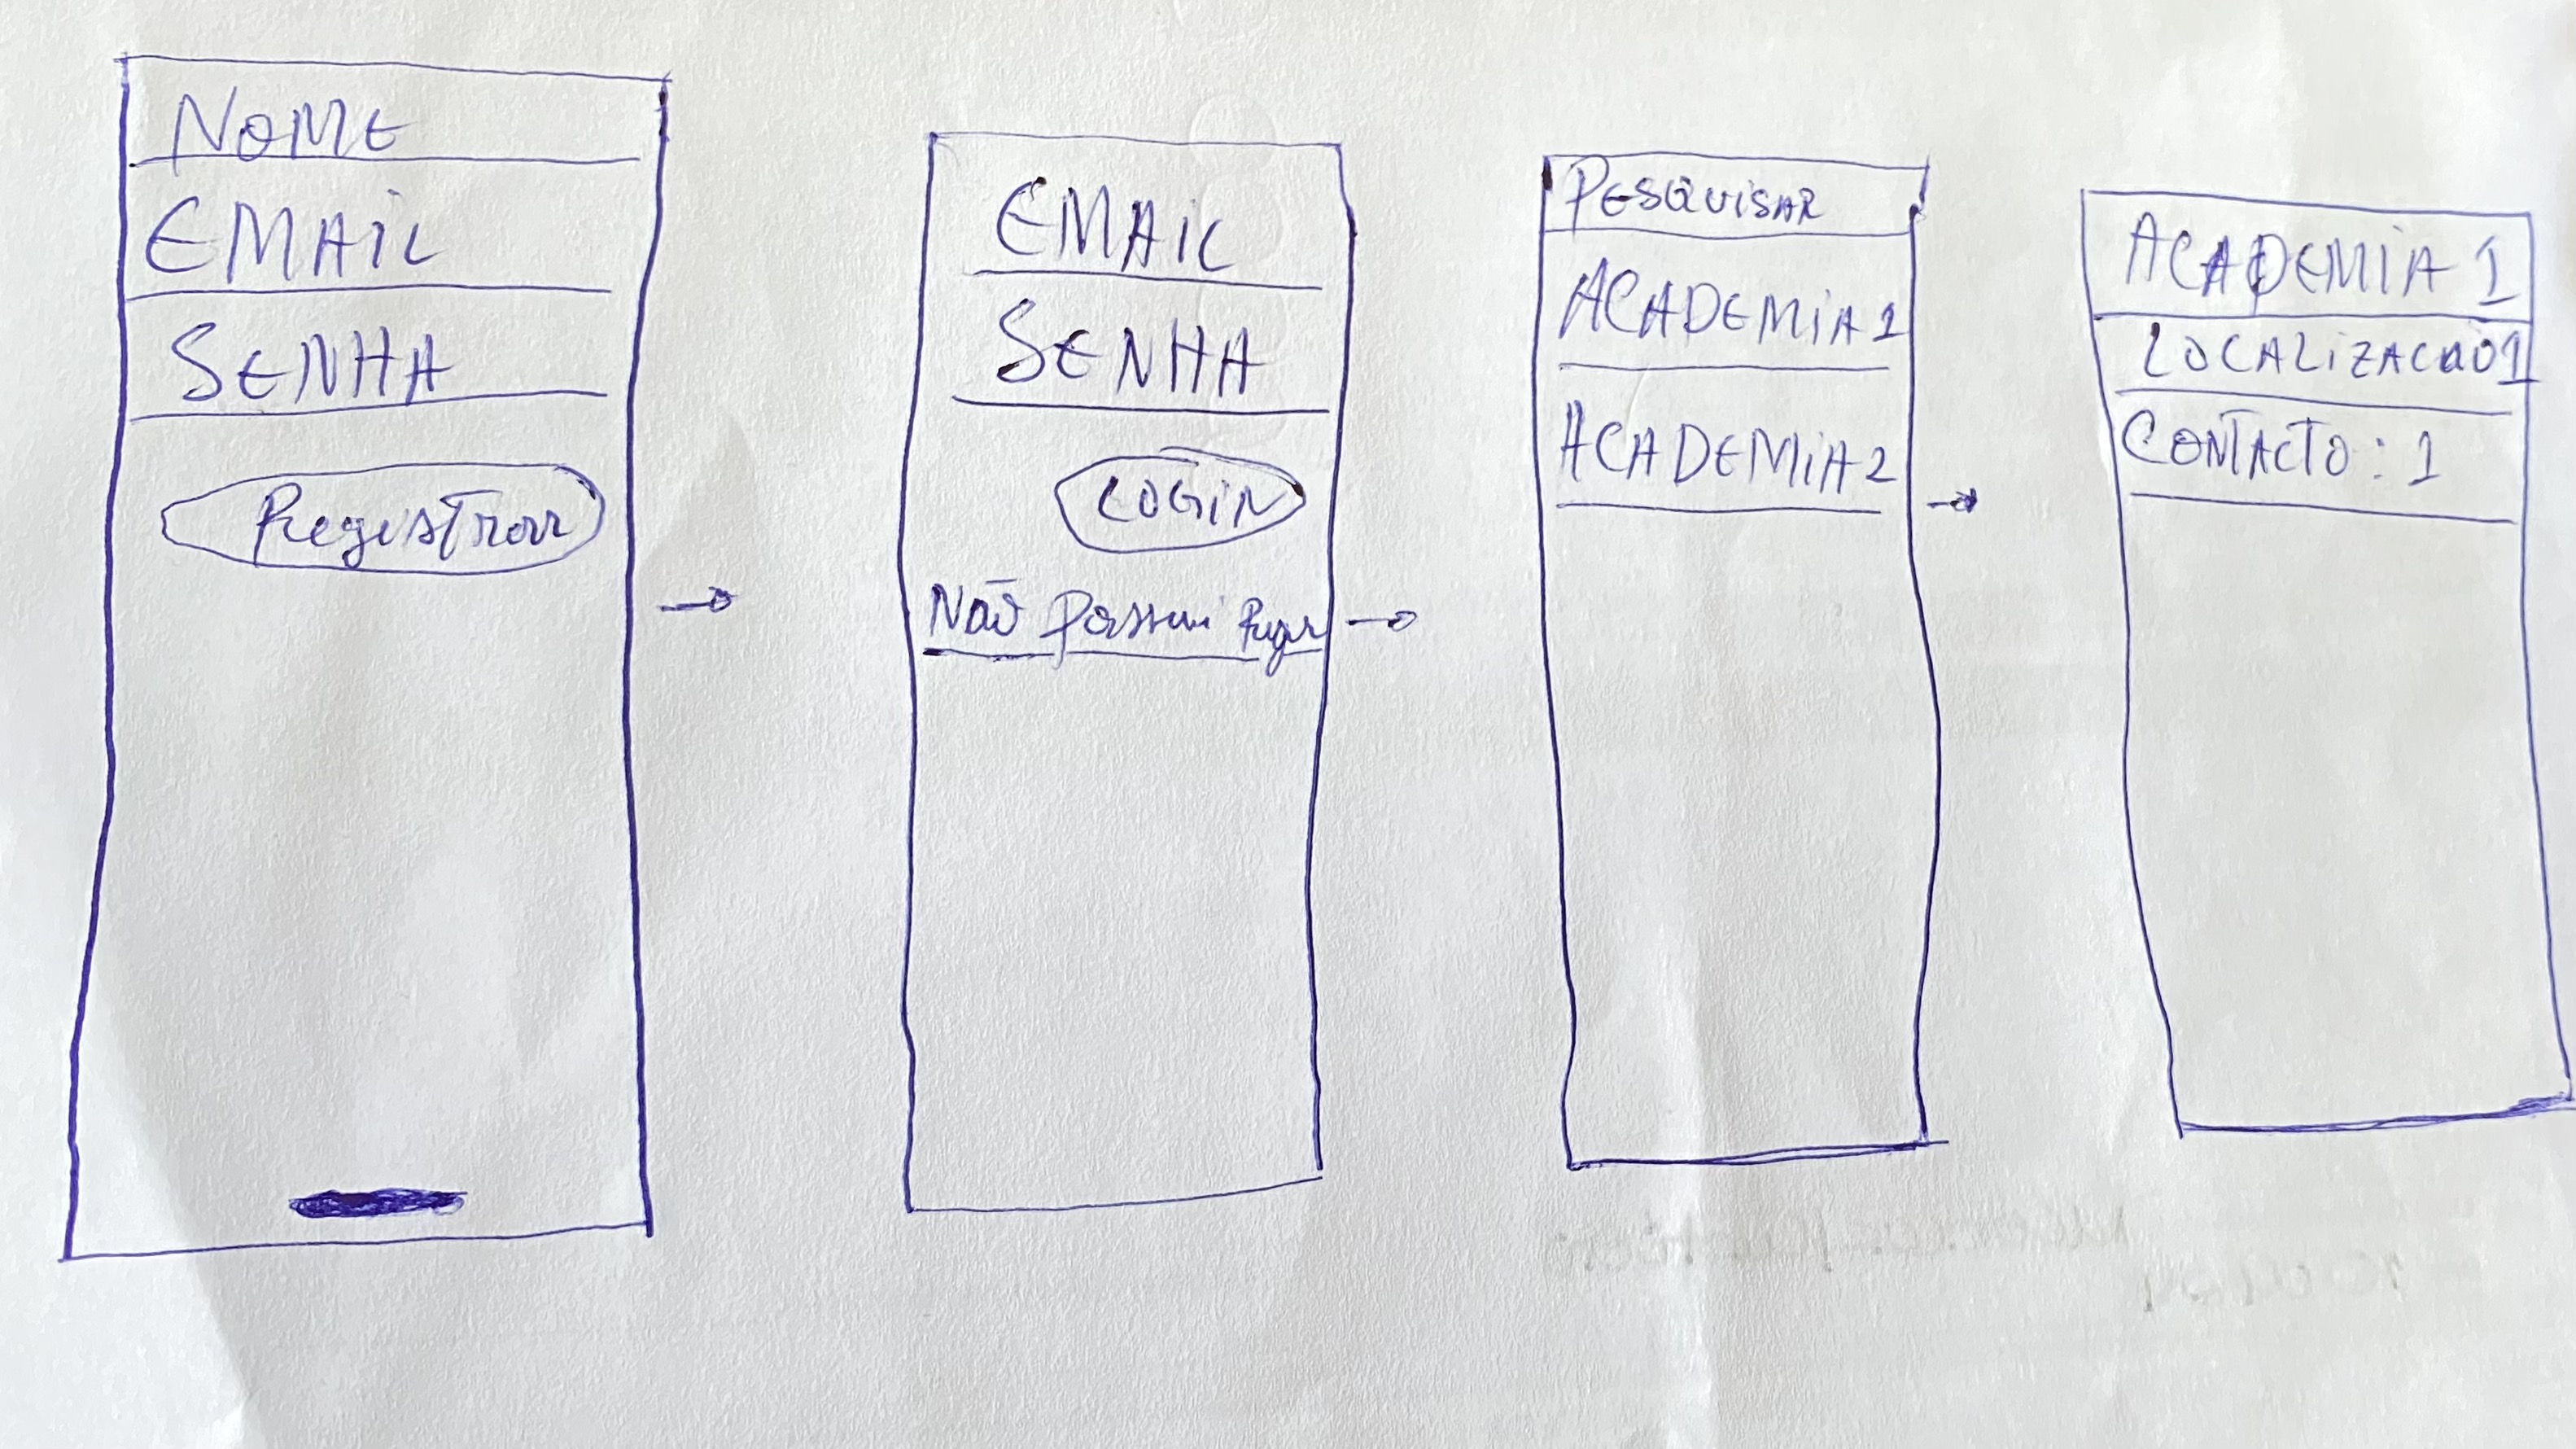 NOME
EMAIL
SENHA
Registrar
EMAIL
SENHA
LOGIN
Não Possui
PESQUISAR
ACADEMIA 1
ACADEMIA 2
ACADEMIA 1
LOCALIZACAO 1
CONTACTO: 1